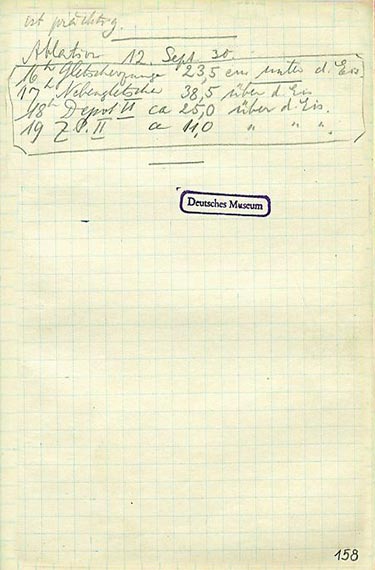 ist prächtig.
Ablation 12. Sept. 30.
16ʰ Gletscherzunge 23,5 cm unter d. Eis
17ʰ Nebengletscher 38,5 über d. Eis
18ʰ Depot III ca 25,0 über d. Eis.
19 Z.P. II ca 11,0 " " "
Deutsches Museum
158